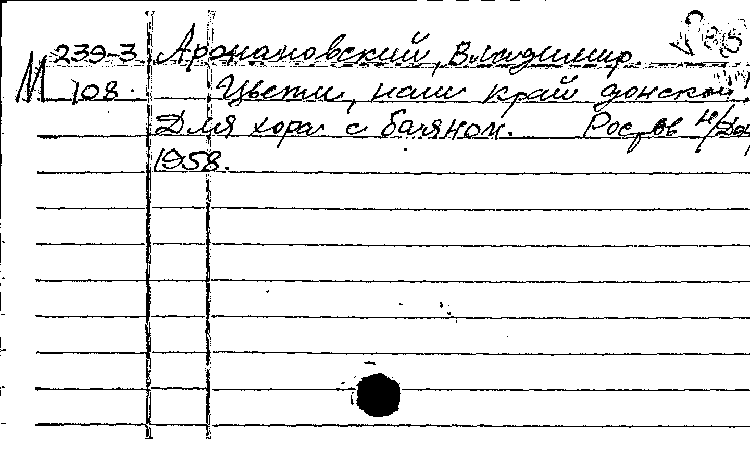 М 239-3 Аронановский, Владимир.
108. Цвети, наш край донской.
Для хора с баяном. Ростов н/Дон,
1958.